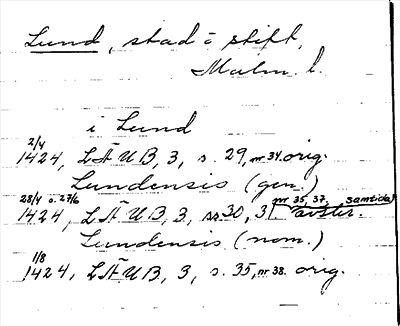 Lund, stad o stift,
Malm. l.
i Lund
2/4
1424, LÄUB, 3, s. 29, nr 34. orig.
Lundensis (gen.)
28/4 o. 27/6 nr 35, 37. samtida
1424, LÄUB, 3, ss. 30, 31. avskr.
Lundensis (nom.)
1/8
1424, LÄUB, 3, s. 35, nr 38. orig.